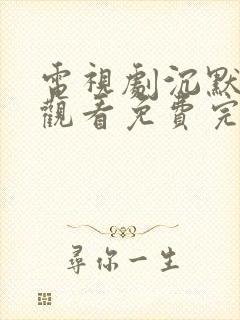 電視劇沉默
觀看免費完
尋你一生